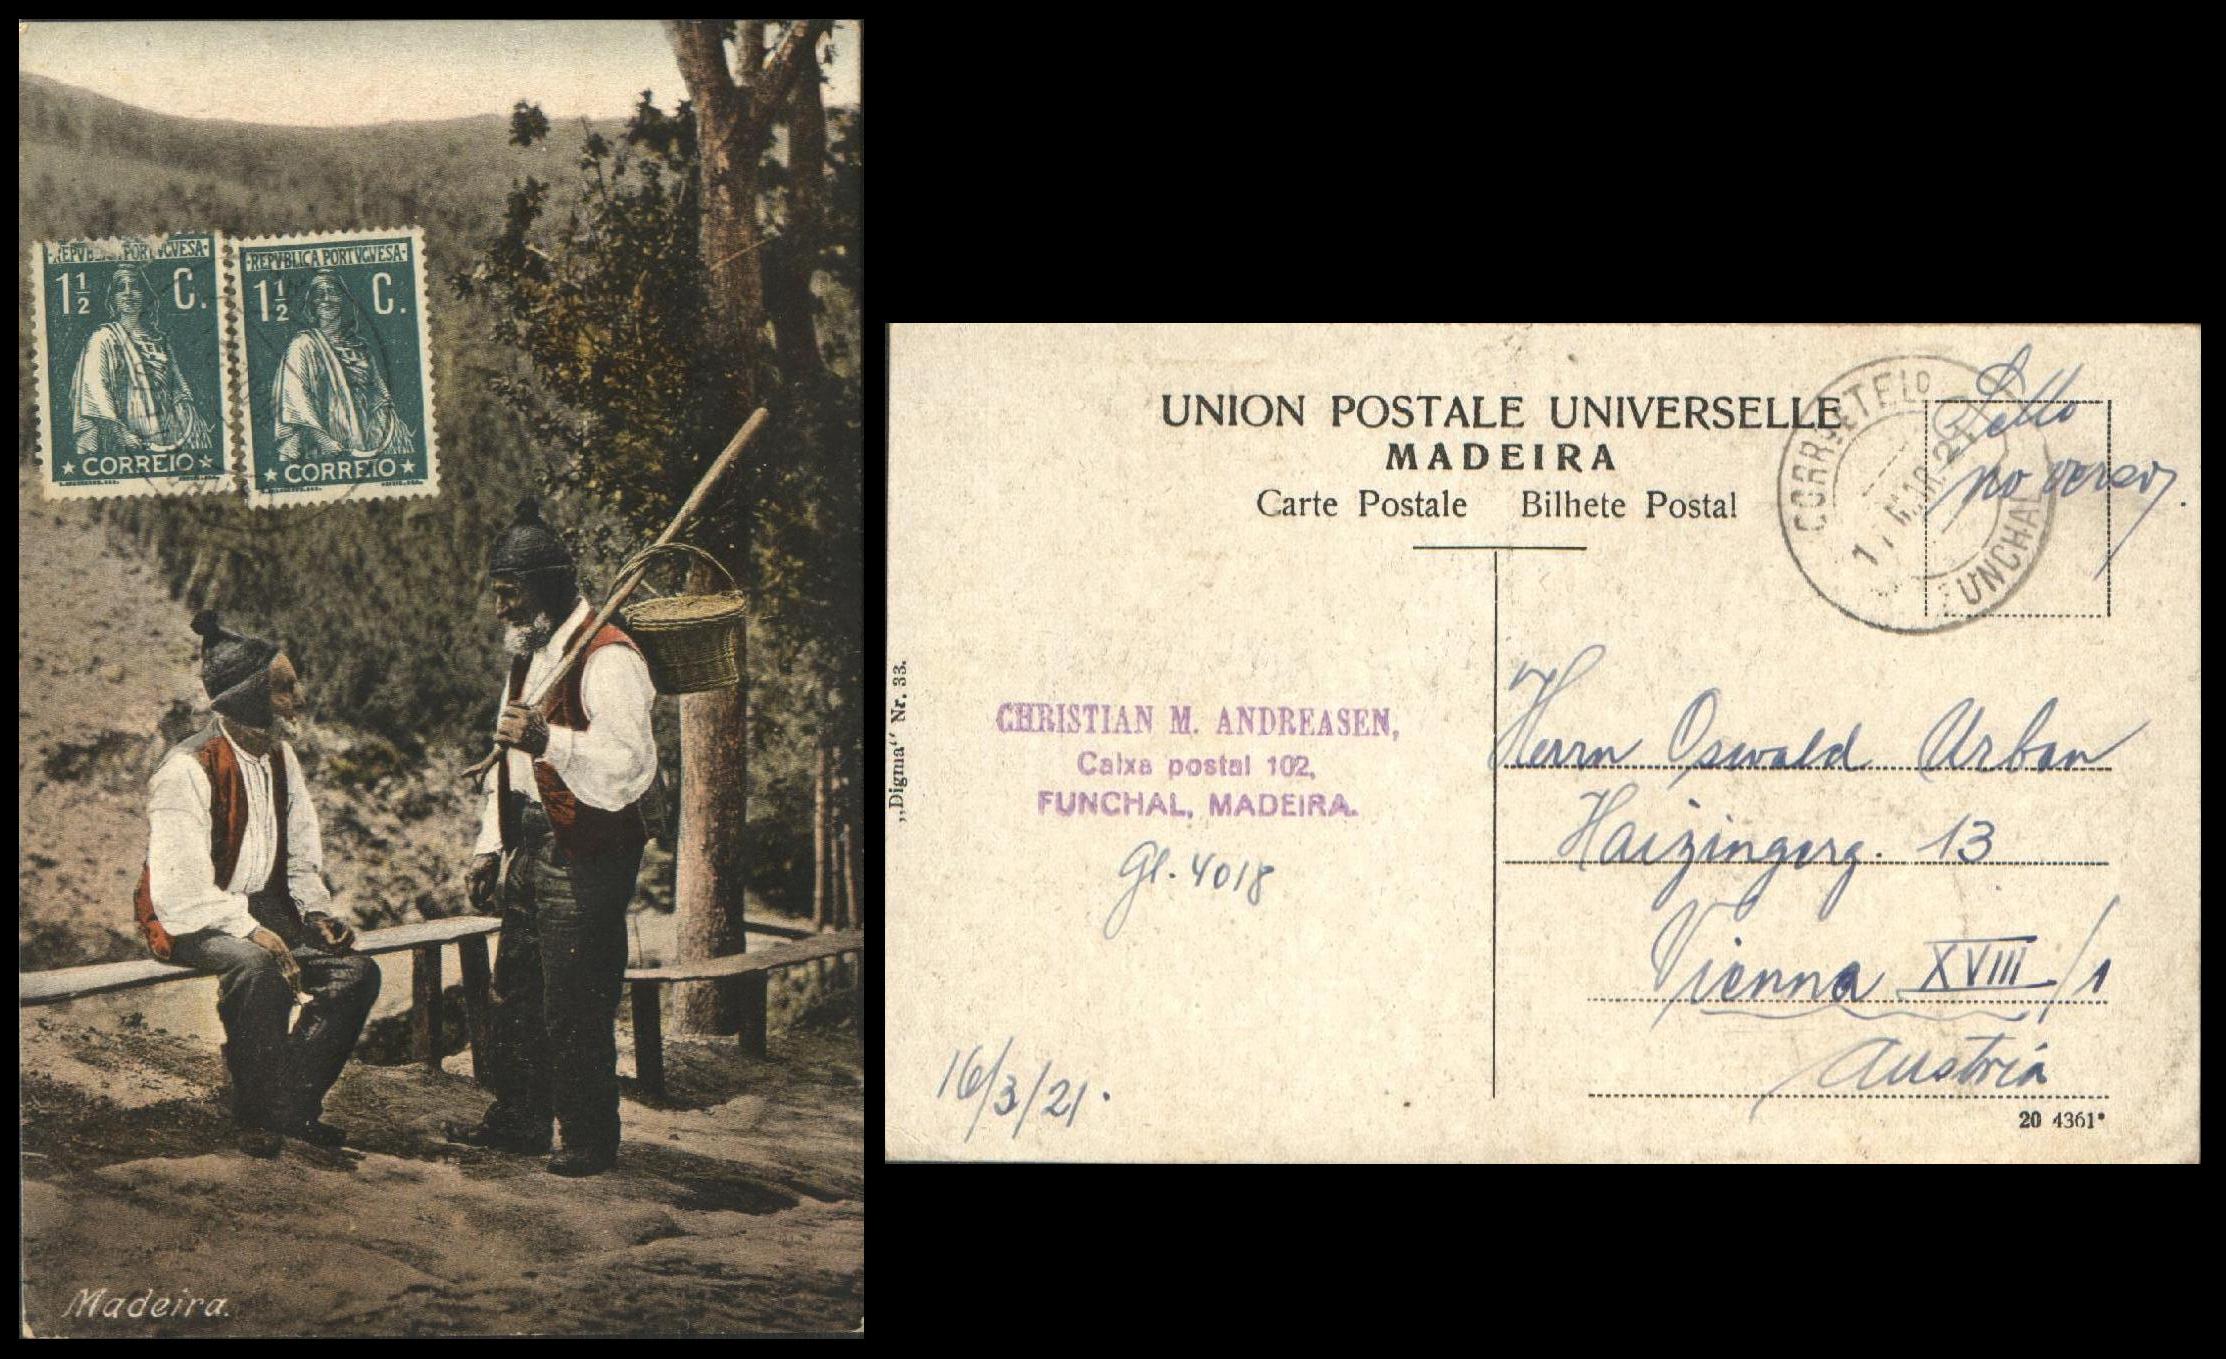 ·REPVBLICA PORTVGVESA·
1½ C.
CORREIO
·REPVBLICA PORTVGVESA·
1½ C.
CORREIO
Madeira.
UNION POSTALE UNIVERSELLE
MADEIRA
Carte Postale Bilhete Postal
17 MAR. 21
FUNCHAL
Sello
no verso.
„Digma“ Nr. 33.
CHRISTIAN M. ANDREASEN,
Caixa postal 102,
FUNCHAL, MADEIRA.
Gl. 4018
16/3/21.
Herrn Oswald Urban
Haizingerg. 13
Vienna XVIII/1
Austria
20 4361*